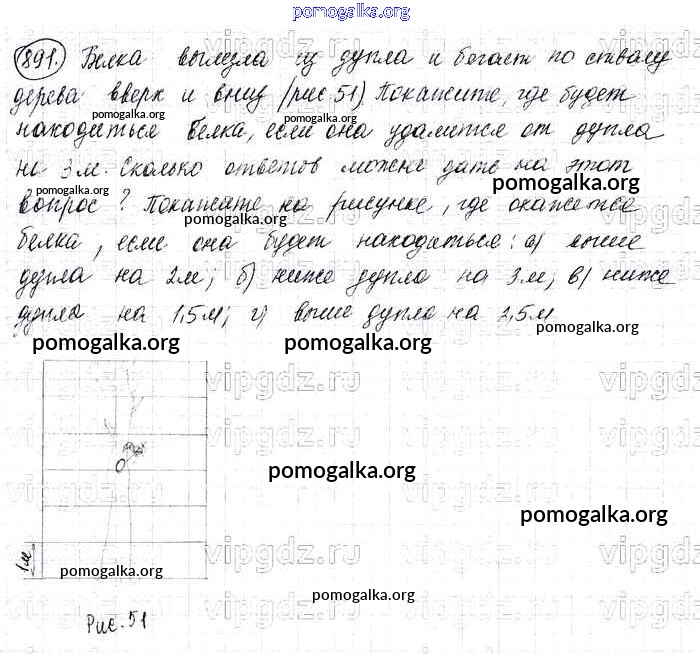 pomogalka.org
891. Белка вылезла из дупла и бегает по стволу
дерева вверх и вниз (рис 51) Покажите, где будет
находиться белка, если она удалится от дупла
на 3 м. Сколько ответов можно дать на этот
вопрос? Покажите на рисунке, где окажется
белка, если она будет находиться: а) выше
дупла на 2м; б) ниже дупла на 3м; в) ниже
дупла на 1,5м; г) выше дупла на 2,5м
pomogalka.org
pomogalka.org
pomogalka.org
pomogalka.org
pomogalka.org
pomogalka.org
pomogalka.org pomogalka.org
vipgdz.ru vipgdz.ru vipgdz.ru
pomogalka.org
pomogalka.org
1м
pomogalka.org
pomogalka.org
Рис. 51